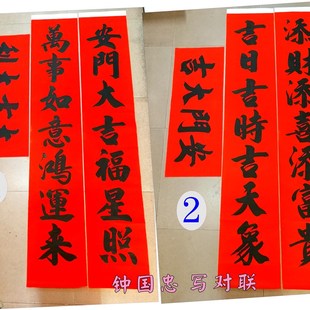 安門大吉福星照
萬事如意鴻運来
添財添喜添富貴
吉日吉時吉天象
安門大吉
2
钟国忠 写对联